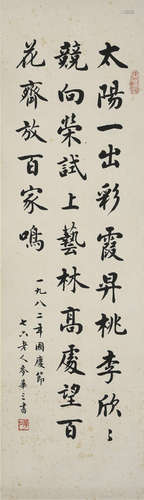 太陽一出彩霞昇桃李欣〻
競向榮試上藝林高處望百
花齊放百家鳴
一九八二年國慶節
七六老人麥華三書